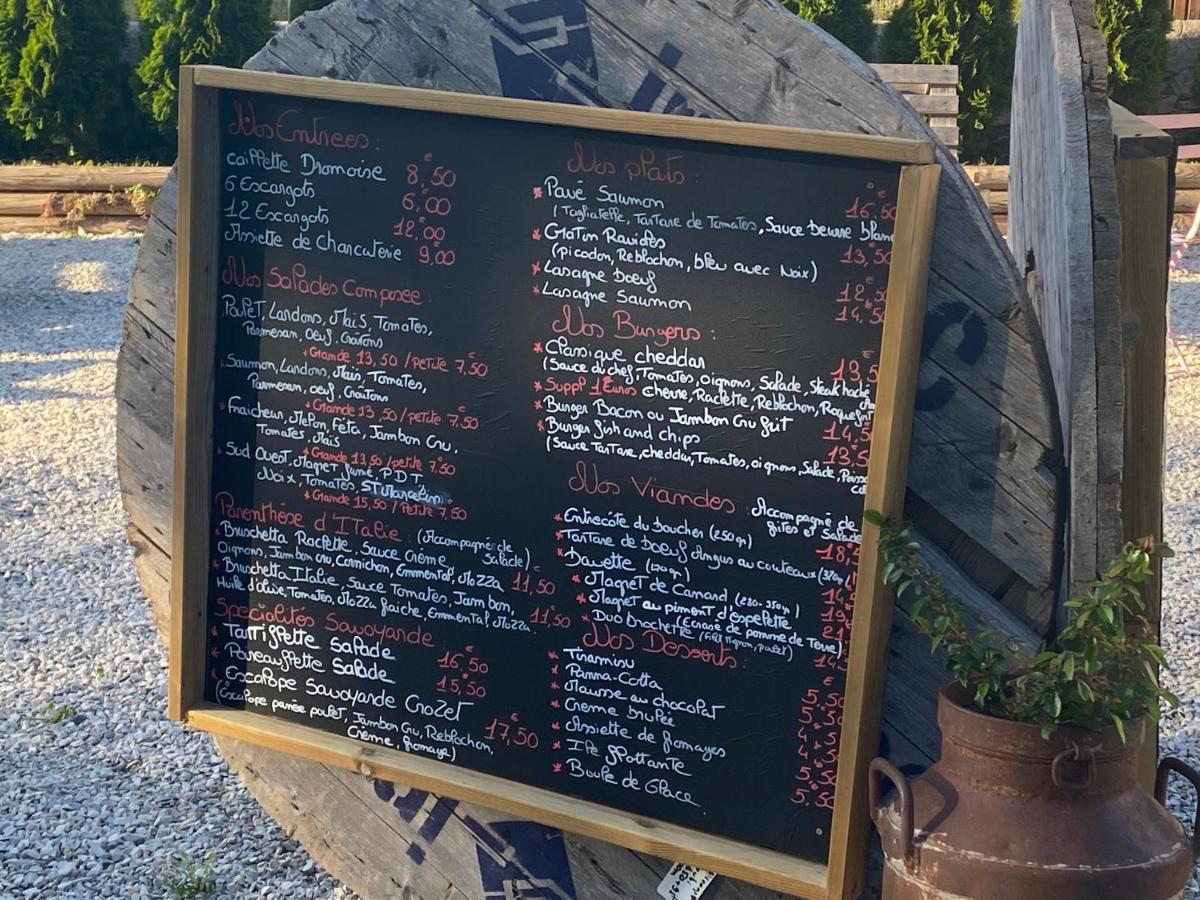 Nos Entrees :
caillette Dromoise 8,50€
6 Escargots 6,00
12 Escargots 12,00
Assiette de Charcuterie 9,00
Nos Salades Composee :
Poulet, Lardons, Maïs, Tomates,
Parmesan, Oeuf, Croûtons
* Grande 13,50 / Petite 7,50
Saumon, Lardons, Maïs, Tomates,
Parmesan, oeuf, Croûtons
* Grande 13,50 / petite 7,50
Fraicheur, Melon, Féta, Jambon Cru,
Tomates, Maïs
* Grande 13,50 / petite 7,50
Sud Ouest, Magret fumé, P.D.T,
Noix, Tomates, ST Marcellin
* Grande 15,50 / Petite 7,50
Parenthèse d'Italie : (Accompagnée de
Salade)
* Bruschetta Raclette, Sauce Crème
Oignons, Jambon cru, Cornichon, Emmental, Mozza 11,50€
* Bruschetta Italie, Sauce Tomates, Jambon,
Huile d'olive, Tomates, Mozza fraiche, Emmental, Mozza. 11,50€
Spécialités Savoyarde
* Tartiflette Salade 16,50€
* Poireauflette Salade 15,50€
* Escalope Savoyarde Crozet
(Escalope panée poulet, Jambon Cru, Reblochon, 17,50€
Crème, fromage)
Nos plats :
* Pavé Saumon 16,50€
(Tagliatelle, Tartare de Tomates, Sauce beurre blanc
* Gratin Ravioles 13,50
(picodon, Reblochon, bleu avec Noix)
* Lasagne boeuf 12,50€
* Lasagne Saumon 14,50
Nos Burgers :
* Classique cheddar 13,5
(Sauce du chef, Tomates, oignons, Salade, steak haché
* Suppl 1 Euros chèvre, Raclette, Reblochon, Roquefort
* Burger Bacon ou Jambon Cru grit 14,5
* Burger fish and chips 13,5
(Sauce Tartare, cheddar, Tomates, oignons, Salade, Poiss
Nos Viandes : Accompagné de
frites et Salade
* Entrecôte du boucher (250gr) 18,
* Tartare de boeuf Angus au couteaux
* Bavette
* Magret de Canard
* Magret au piment d'espelette
(Ecrasé de pomme de Terre)
* Duo brochette (Filet Mignon, poulet)
Nos Desserts :
* Tiramisu
* Panna-Cotta
* Mousse au chocolat
* Crème brulée
* Assiette de fromages
* Ile flottante
* Boule de Glace